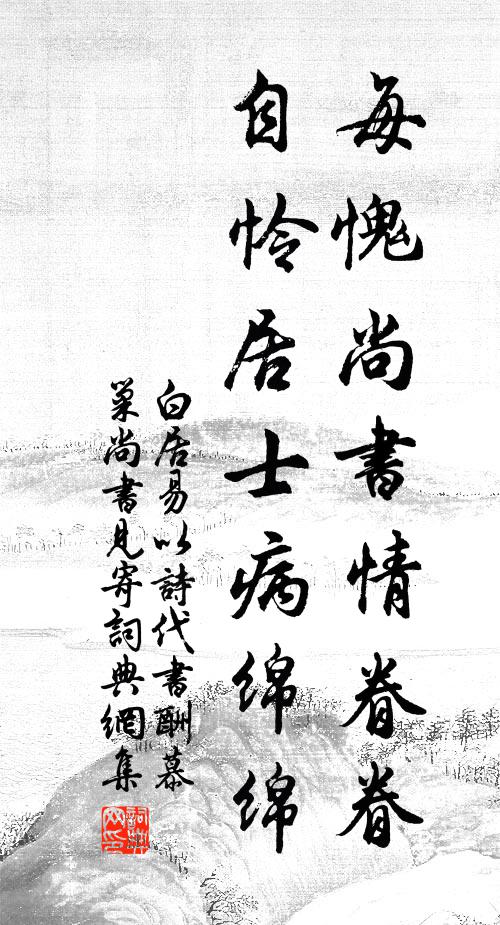 每愧尚書情眷眷
自怜居士病綿綿
白居易以詩代書酬慕
巢尚書見寄詞典網集